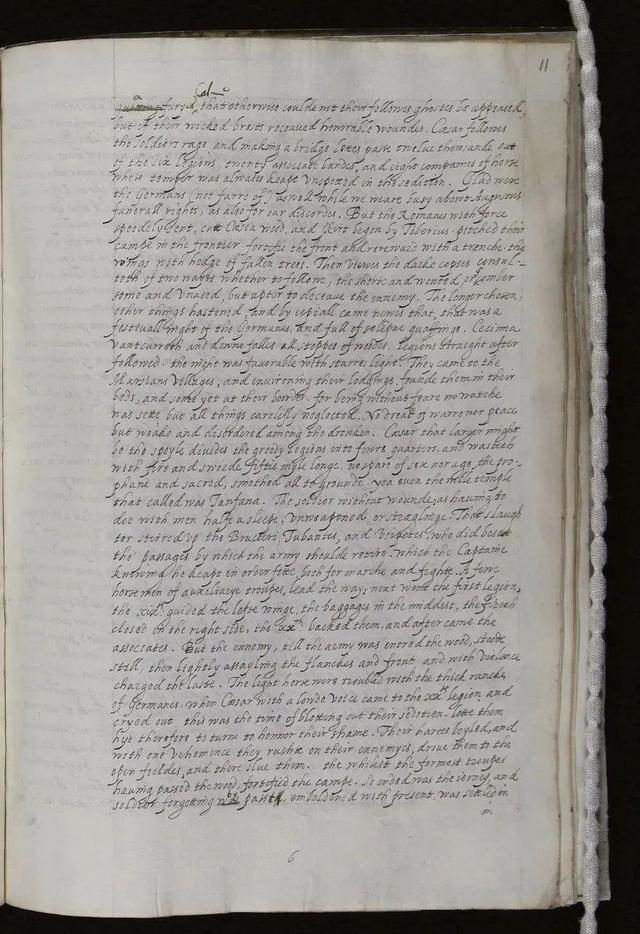 11
furye, that otherwise coulde not their fellowes ghostes be appeased,
but if their wicked brests receaued honorable woundes. Cæsar follows
the soldiers rage and making a bridge lettes passe twelue thousande out
of the six legions, twenty associate bandes, and eight companies of horse
whose temper was alwaies keapt vnspotted in the sedition. Glad were
the Germans (not farre of) as well while we weare busy about Augustus
funerall rights, as also for our discordes. But the Romanes with force
speedely sent, cutt Cæsia wood, and skirt begon by Tiberius. pitched their
campe in the frontier fortefie the front and rereward with a trenche, the
winges with hedge of fallen trees. Then viewes the darke copses consul-
teth of two wayes whether to followe, the shorte and wonted, or
some and vnused, but apter to deceaue the ennemy. The longer chosen,
other things hastened, and by espiall came newes that, that was a
festiuall night of the Germanes, and full of sollepne quaffings. Cecinna
vantcurreth and donne falles all stoppes of woodes. legions straight after
followed. the night was favorable with starres light. They came to the
Marsians villages, and environing their lodgings, founde them in their
beds, and some yet at their bordes. for being without feare no watche
was sette but all things carelesly neglected. No dread of warre nor peace
but weake and disordered among the dronken. Cæsar that larger might
be the spoyle divides the greedy legions into fowre quarters. and wasteth
with fire and swoorde fiftie myle longe. no spare of sex nor age, the pro-
phane and sacred, smothed all to grounde. yea even the temple
that called was Tanfana. The soldier without wounde, as having to
doe with men halfe a sleepe, vnweaponed, or straglinge. That slaugh
ter stirred vp the Bructeri, Tubantes, and Vsipetes, who did besett
the passages by which the army shoulde retire. which the Captaine
knowing he keapt in order fitte, both for marche and fighte. A fewe
horsemen of auxiliarye troupes, lead the way; next went the first legion,
the guided the lefte winge, the baggages in the middest, the
closed on the right side, the xxth backed them, and after came the
associates. But the ennemy, till the army was entred the wood, stoode
still, then lightly assayling the flanckes and front, and with violence
charged the laste. The light horse were troubled with the thick ranckes
of Germanes. when Cæsar with a lowde voice came to the xxth legion, and
cryed out, this was the time of blotting out their sedition. lette them
hye therefore to turne to honnor their shame. Their hartes boyled, and
with one vehemence they rushte on their ennemyes, driue them to the
open fieldes, and there slue them. the whilest the formost troupes
having passed the wood, fortefied the campe. So ended was the iorney, and
soldier forgetting past, emboldened with present, was setled in
6